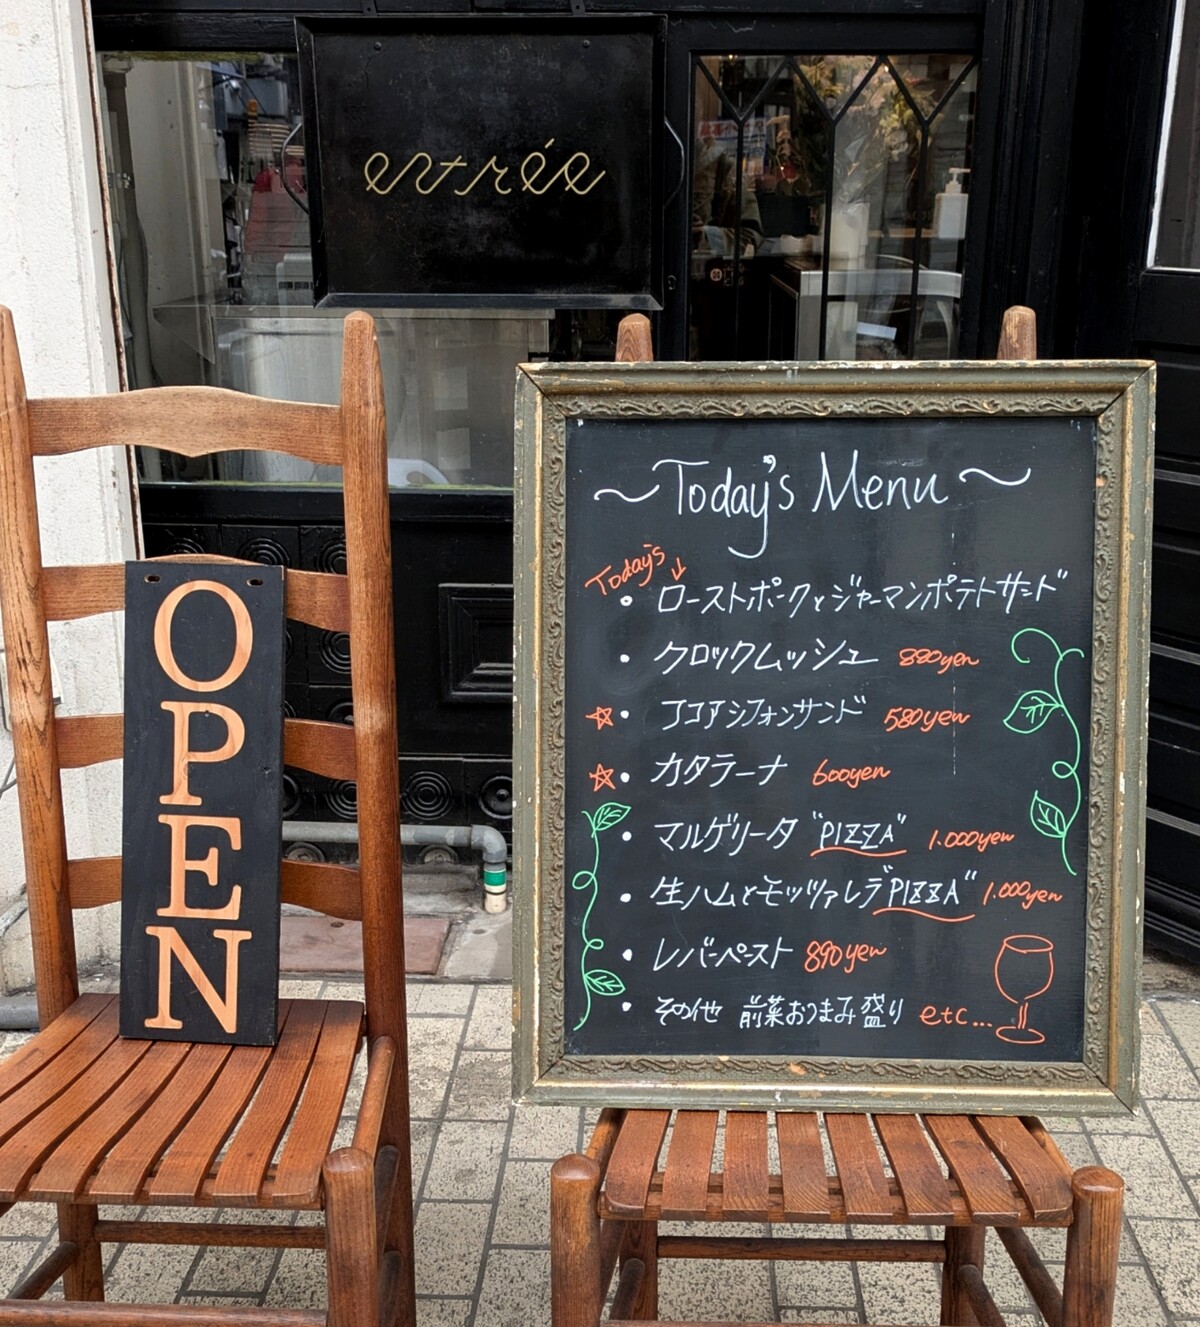 entrée
OPEN
~Today's Menu~
Today's↓
・ローストポークとジャーマンポテトサンド
・クロックムッシュ 880yen
☆・ココアシフォンサンド 580yen
☆・カタラーナ 600yen
・マルゲリータ "PIZZA" 1.000yen
・生ハムとモッツァレラ"PIZZA" 1.000yen
・レバーペースト 890yen
・その他 前菜おつまみ盛り etc...